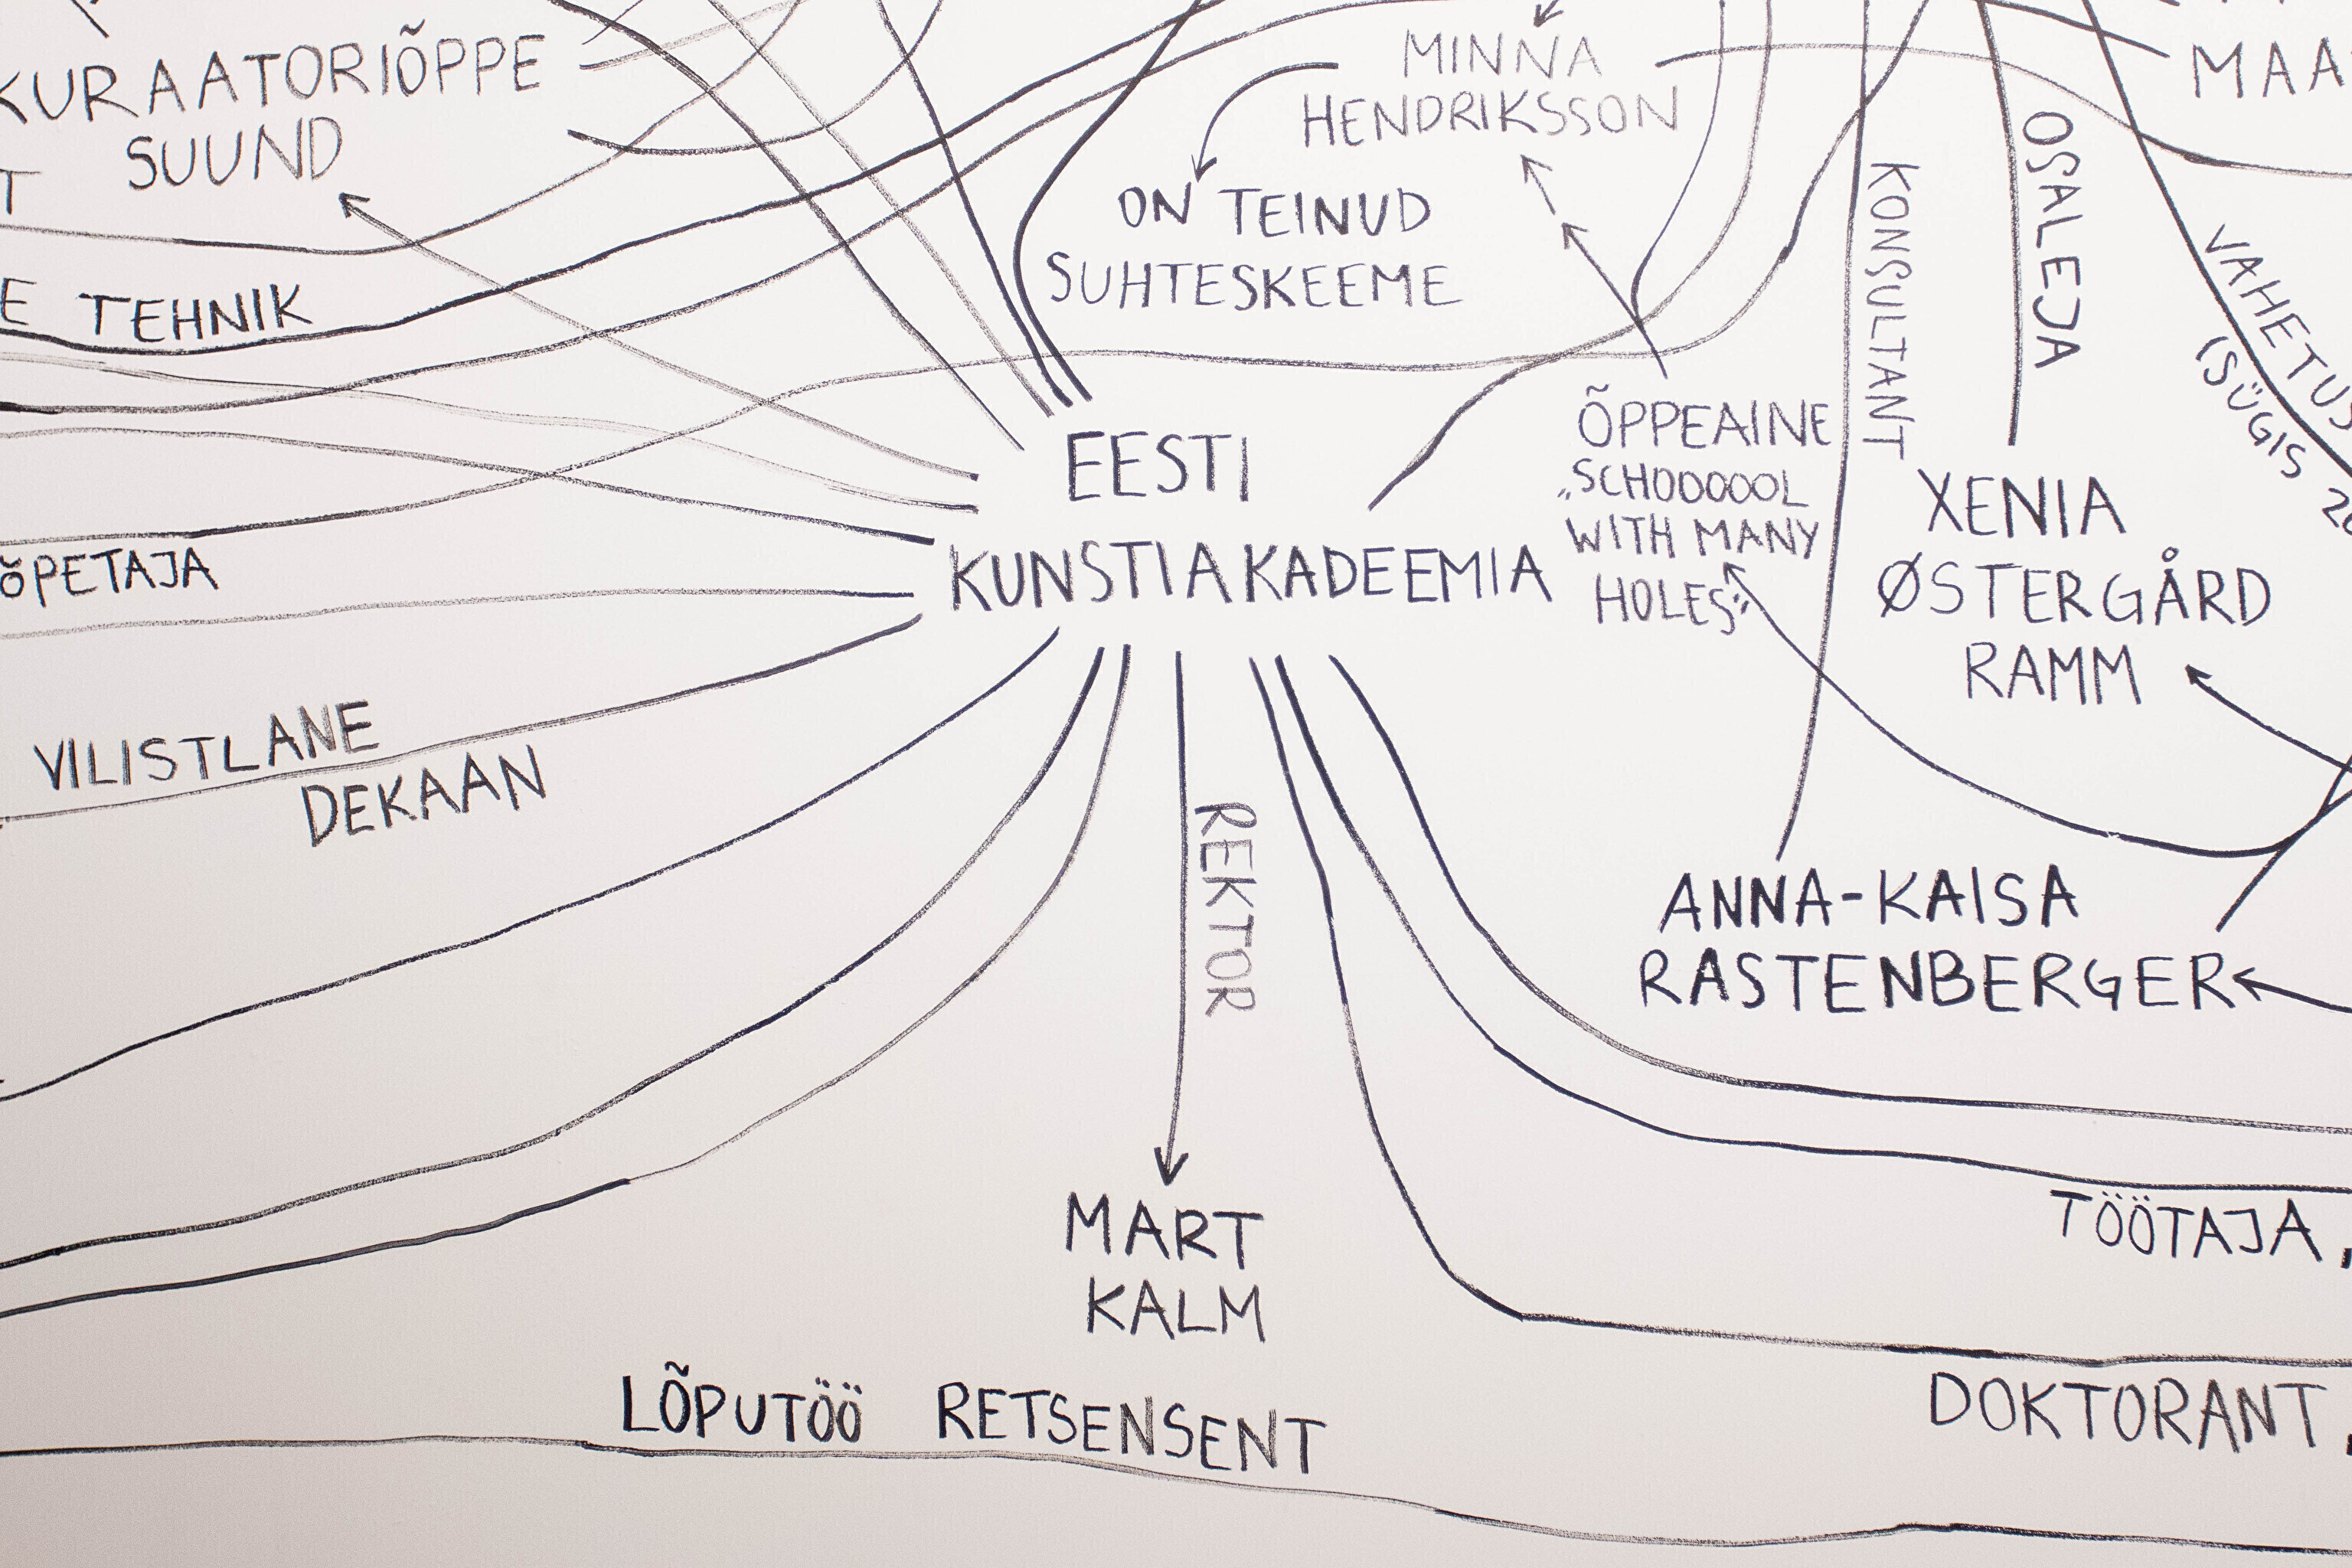 KURAATORIÕPPE
SUUND
T
E TEHNIK
ÕPETAJA
VILISTLANE
DEKAAN
MINNA
HENDRIKSSON
ON TEINUD
SUHTESKEEME
EESTI
KUNSTIAKADEEMIA
ÕPPEAINE
„SCHOOOOOL
WITH MANY
HOLES"
KONSULTANT
OSALEJA
MAA
VAHETUS
(SÜGIS 20
XENIA
ØSTERGÅRD
RAMM
ANNA-KAISA
RASTENBERGER
REKTOR
MART
KALM
TÖÖTAJA,
DOKTORANT,
LÕPUTÖÖ RETSENSENT